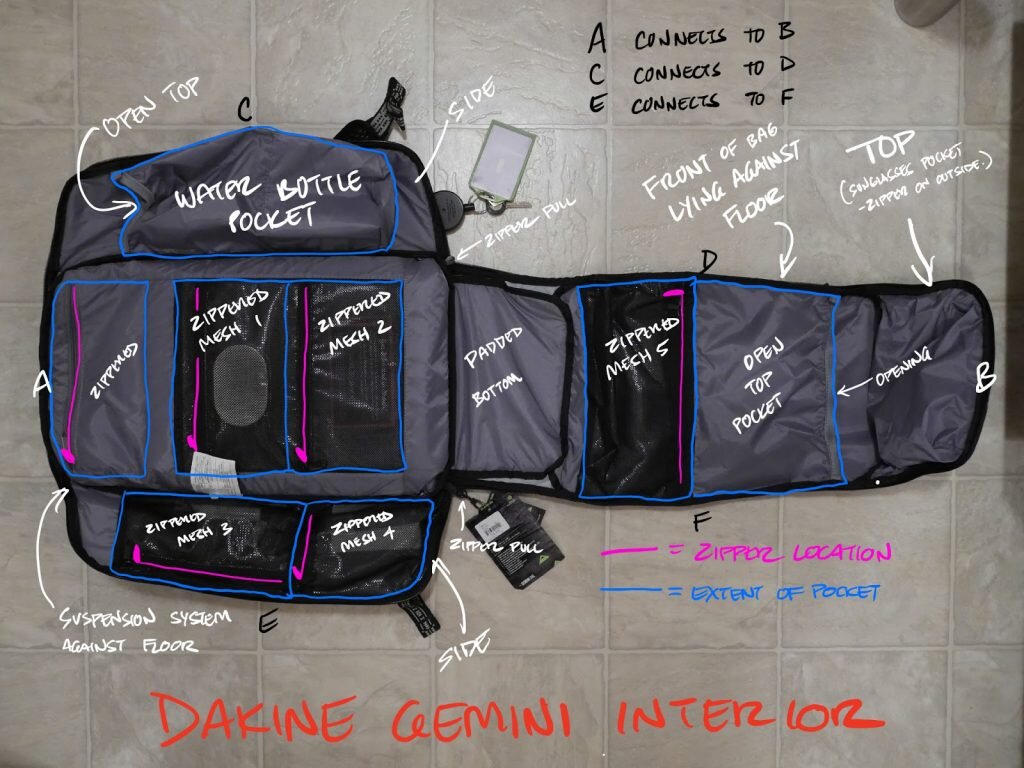 A CONNECTS TO B
C CONNECTS TO D
E CONNECTS TO F
C
OPEN TOP
SIDE
WATER BOTTLE
POCKET
ZIPPER PULL
FRONT OF BAG
LYING AGAINST
FLOOR
TOP
(SUNGLASSES POCKET
-ZIPPER ON OUTSIDE.)
D
A
ZIPPERED
ZIPPERED
MESH 1
ZIPPERED
MESH 2
PADDED
BOTTOM
ZIPPERED
MESH 5
OPEN
TOP
POCKET
OPENING
B
ZIPPERED
MESH 3
ZIPPERED
MESH 4
ZIPPER PULL
F
= ZIPPER LOCATION
= EXTENT OF POCKET
SUSPENSION SYSTEM
AGAINST FLOOR
E
SIDE
DAKINE GEMINI INTERIOR